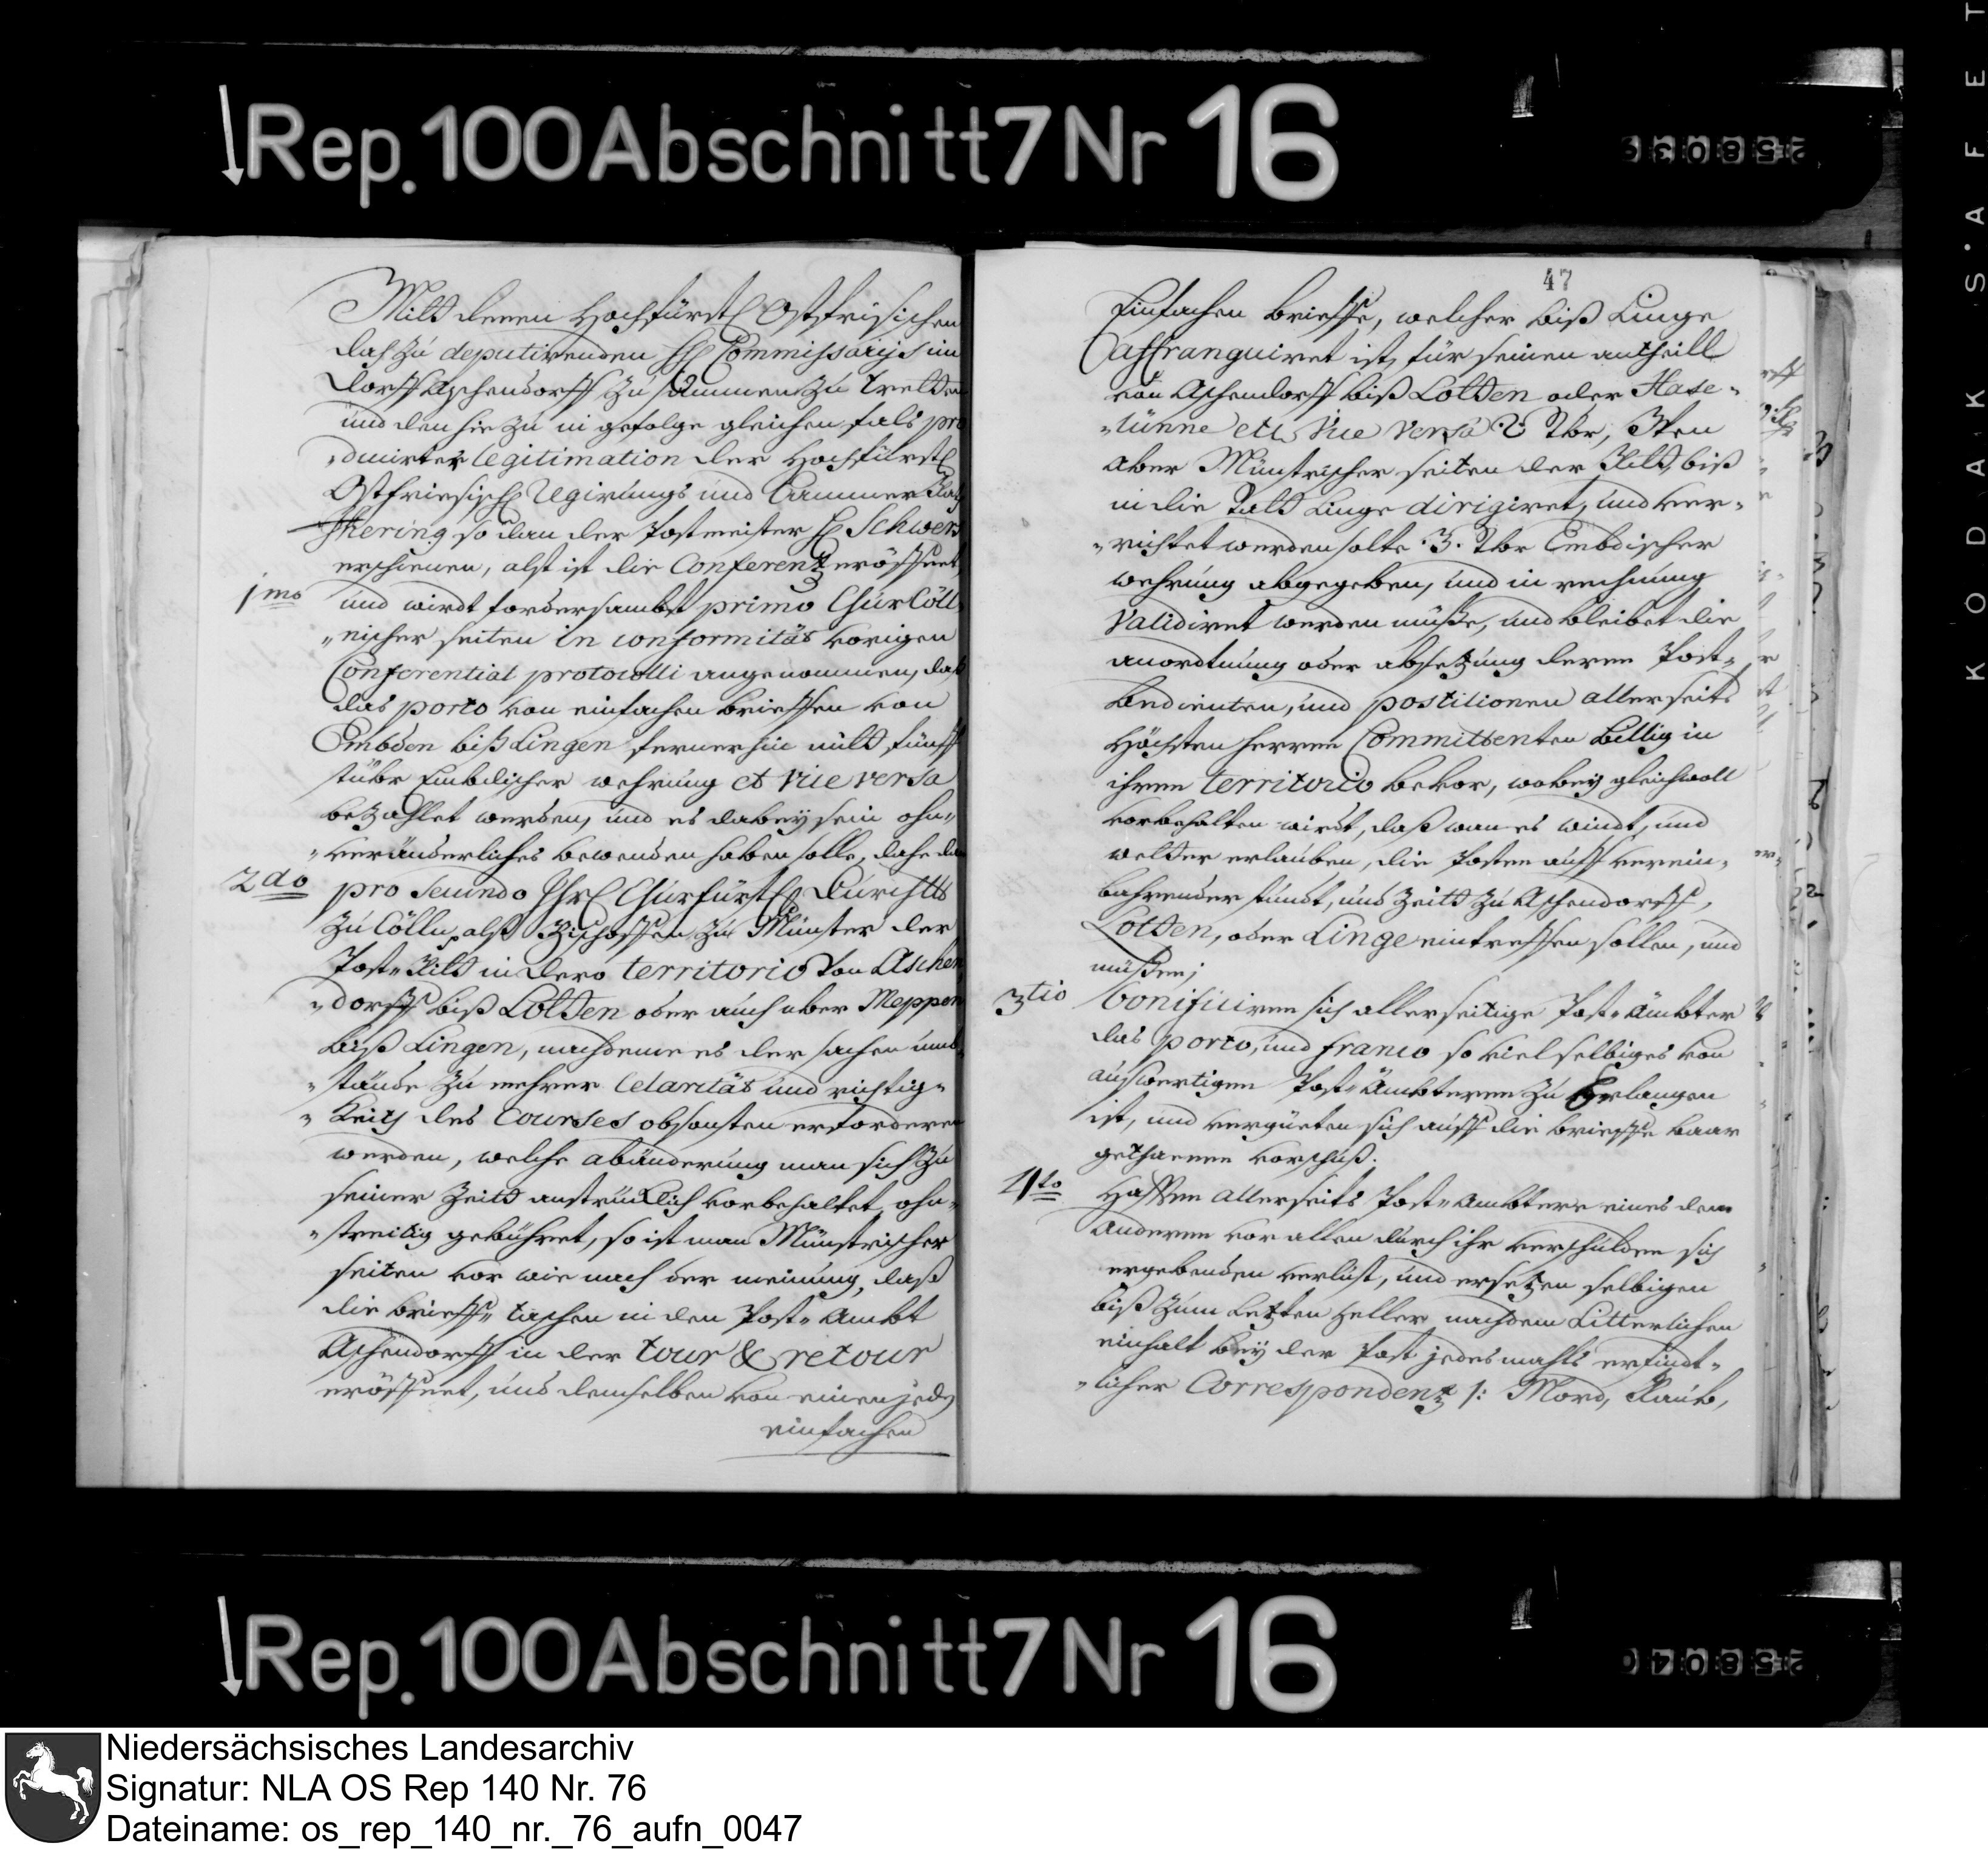 ↓Rep.100Abschnitt7Nr 16
Mitt denen Hochfürstl Ostfrisischen
dahzu deputirenden HH Commissarijs im
dorff Aschendorff zu sammen zu tretten
und den hiezu in gefolge gleichen fals pro
"ducirter legitimation der Hochfürstl
Ostfriesischl Regirungs und Cammer Rath
Jhering so dan der Postmeister H Schwers
erschienen, alß ist die Conferentz eröffnet,
1mo und wirdt fordersambst primo Chür Cöll
"nischer seiten in conformität vorigen
Conferential protocolli angenommen, daß
das porto von einfachen brieffen von
Embden biß Lingen fernerhin mitt fünff
stübr Embdischer wehrung et vice versa
bezahlet werden, und es dabey sein ohn"
"veränderliches bewenden haben solle, dahe da
2do pro secundo Ihrl Churfürstl Dürchltt
zu Cölln, alß Bischoffen zu Münster der
Post"Ritt in dero territorio von Aschen
"dorff biß Lotten oder auch uber Meppen
biß Lingen, nachdeme es der sachen umb
"stände zu mehrer Celarität und richtig"
"Keith des Courses obsonsten erforderen
werden, welche abänderung man sich zu
seiner Zeitt austrücklich vorbehaltet ohn"
"streitig gebühret, so ist man Münstrischer
seiten vor wie nach der meinung, daß
die brieff" taschen in den Post" Ambt
Aschendorff in der tour & retour
eröffnet, und demselben von einen jeden
einfachen
47
Einfachen brieffe, welcher biß Linge
affranquiret ist, für seinen antheill
von Aschendorff biß Lotten oder Hase"
"lünne et vice versa 2 stbr,
aber Münstrischer seiten der Ritt biß
in die statt Linge dirigiret, und ver"
"richtet werden solte .3. stbr Embdischer
wehrung abgegeben, und in rechnung
validiret werden müße, und bleibet die
anordtnung oder absetzung deren Post"
bedienten, und postilionen allerseits
Höchsten herren Committenten billig in
ihren territorio bevor, wobey gleichwoll
vorbehalten wirdt, daß wan es windt, und
wetter erlauben, die Posten auff verein"
bahrender stundt, und Zeitt zu Aschendorff,
Lotten, oder Linge eintreffen sollen, und
müßen;
3tio bonificiren sich allerseitige Post"Ämbter
das porto, und franco so viel selbiges von
auswertigen Post"Ämbteren zu Erlangen
ist, und vergüeten sich auff die brieffe baar
gethanen vorschuß.
4to Hafften allerseits Post"Ambtere eines dem
anderen vor allen durch ihr verschulden sich
ergebenden verlust, und ersetzen selbigen
biß zum Letzten Heller nach dem Litterlichen
einhalt bey der Post jedesmahls erfindt"
"licher Correspondentz /: Mord, Raub,
↓Rep.100Abschnitt7Nr 16
KODAK SAFET
Niedersächsisches Landesarchiv
Signatur: NLA OS Rep 140 Nr. 76
Dateiname: os_rep_140_nr._76_aufn_0047